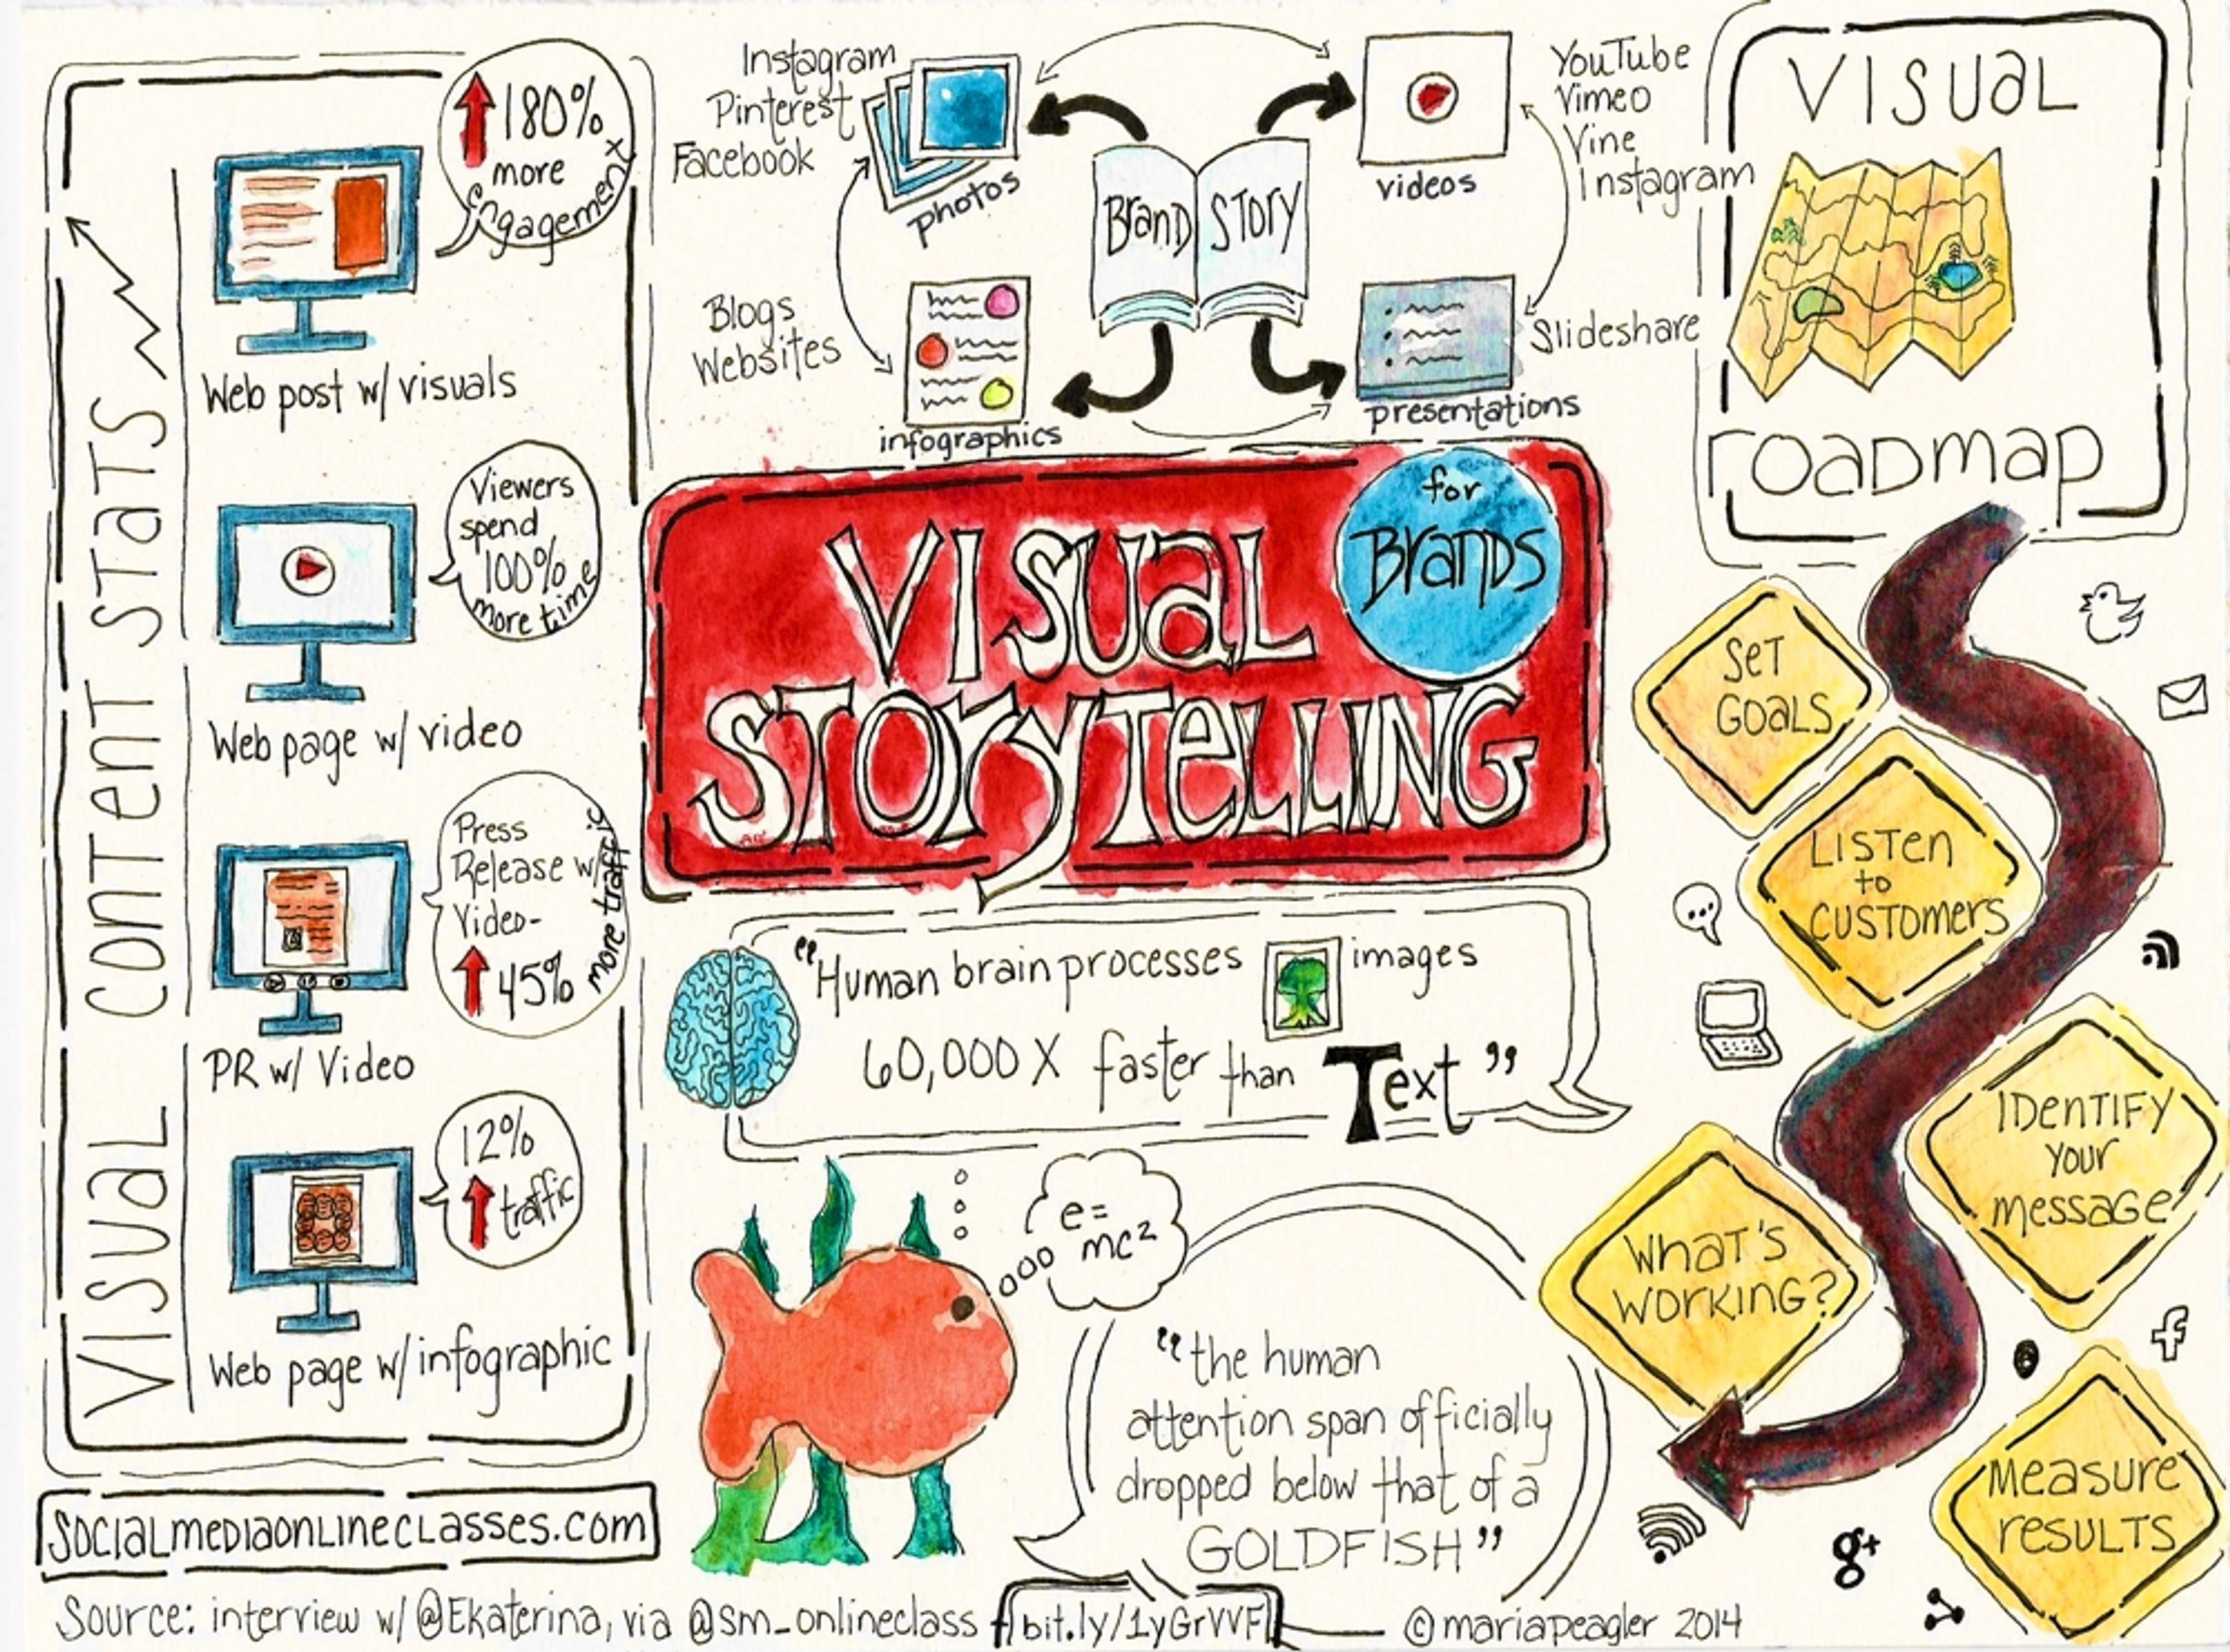 VISUAL CONTENT STATS
180%
more
Engagement
Web post w/ visuals
Viewers
spend
100%
more time
Web page w/ video
Press
Release w/
Video-
45%
more traffic
PR w/ Video
12%
traffic
Web page w/ infographic
socialmediaonlineclasses.com
Instagram
Pinterest
Facebook
photos
Blogs
Websites
infographics
Brand Story
videos
YouTube
Vimeo
Vine
Instagram
Slideshare
presentations
VISUAL
STORYTELLING
for
Brands
"Human brain processes images
60,000 X faster than Text"
e=
mc²
"the human
attention span officially
dropped below that of a
GOLDFISH"
VISUAL
roadmap
SET
GOALS
LISTEN
to
CUSTOMERS
IDENTIFY
your
message
WHAT'S
WORKING?
measure
results
f
g+
Source: interview w/ @Ekaterina, via @sm_onlineclass bit.ly/1yGrVVF © mariapeagler 2014